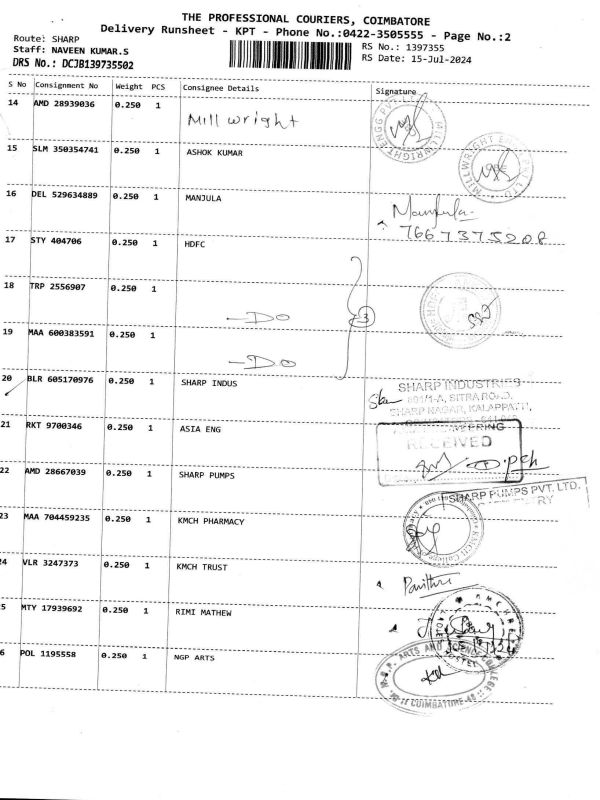 THE PROFESSIONAL COURIERS, COIMBATORE
Delivery Runsheet - KPT - Phone No.:0422-3505555 - Page No.:2
Route: SHARP
Staff: NAVEEN KUMAR.S
DRS No.: DCJB139735502
RS No.: 1397355
RS Date: 15-Jul-2024
S No Consignment No Weight PCS Consignee Details Signature
14 AMD 28939036 0.250 1 Mill wright
15 SLM 350354741 0.250 1 ASHOK KUMAR
16 DEL 529634889 0.250 1 MANJULA Manjula
7667375208
17 STY 404706 0.250 1 HDFC
18 TRP 2556907 0.250 1 - DO 3
19 MAA 600383591 0.250 1 - DO
20 BLR 605170976 0.250 1 SHARP INDUS SHARP INDUSTRIES
601/1-A, SITRA ROAD,
SHARP NAGAR, KALAPPATTI,
21 RKT 9700346 0.250 1 ASIA ENG RECEIVED
22 AMD 28667039 0.250 1 SHARP PUMPS SHARP PUMPS PVT. LTD.
23 MAA 704459235 0.250 1 KMCH PHARMACY
24 VLR 3247373 0.250 1 KMCH TRUST
5 MTY 17939692 0.250 1 RIMI MATHEW
6 POL 1195558 0.250 1 NGP ARTS
COIMBATORE-48